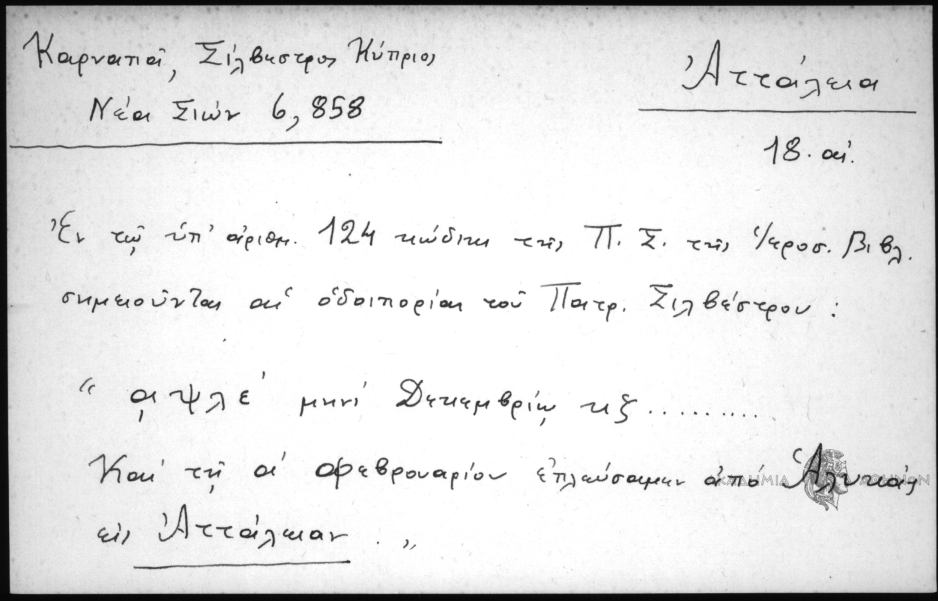 Καρναπᾶ, Σίλβεστρος Κύπριος
Νέα Σιών 6, 858
Ἀττάλεια
18. αἰ.
Ἐν τῷ ὑπ' ἀριθμ. 124 κώδικι τῆς Π. Σ. τῆς Ἱεροσ. Βιβλ.
σημειοῦνται αἱ ὁδοιπορίαι τοῦ Πατρ. Σιλβέστρου :
" ͵αψλε' μηνί Δεκεμβρίῳ κζ ..........
Καί τῇ α' φεβρουαρίου ἐπλεύσαμεν ἀπό Ἁλυκάς
ΑΚΑΔΗΜΙΑ ΑΘΗΝΩΝ
εἰς Ἀττάλειαν . "